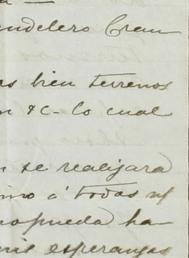 a —
ndelero Crau
as bien terrenos
n &c. lo cual
n se realizara
imo á todas
no pueda ha
mis esperanzas